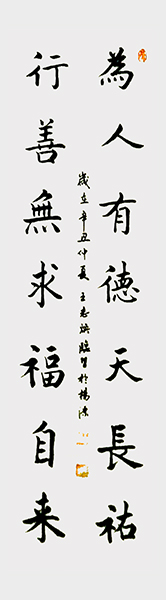 為人有德天長祐
行善無求福自来
歲在辛丑仲夏 王志焕臨習於楊凌